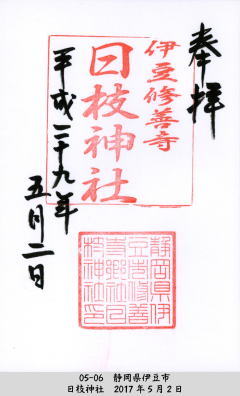 奉拝
伊豆修善寺
日枝神社
平成二十九年
五月二日
静岡県伊
豆市修善
枝神社印
05-06 静岡県伊豆市
日枝神社 2017年5月2日